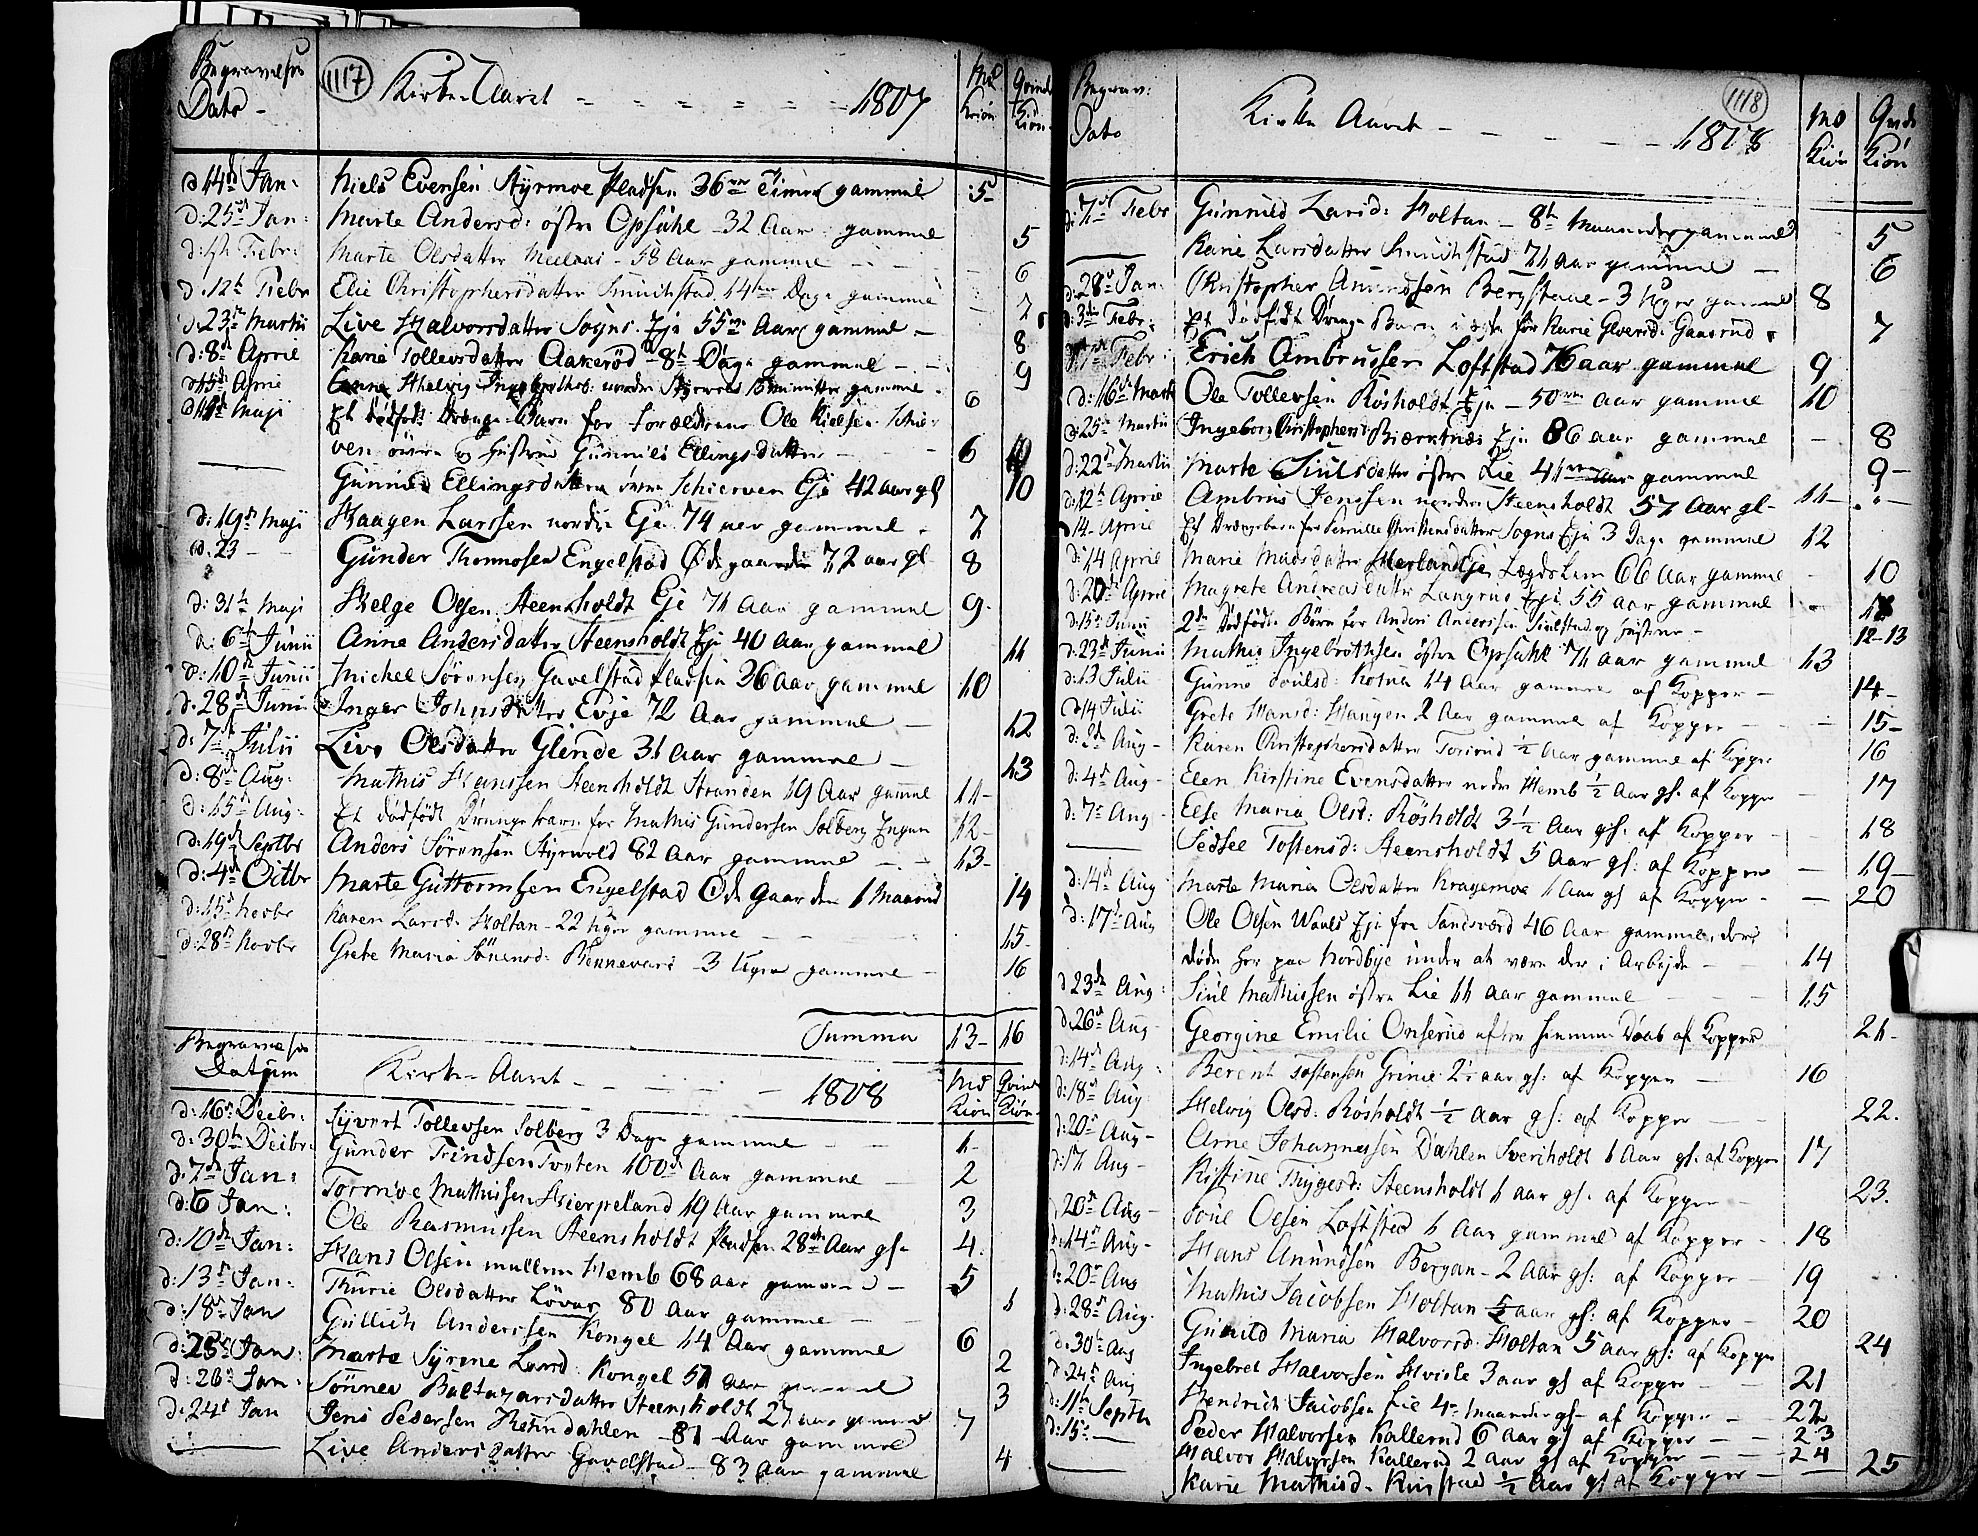 1117
Begravelses Dato -
Kirke-Aaret - - - - - - 1807
Md Kiön
Qvinde Kiön
d 14de Jan: Niels Evensen Styrmoe Pladsen 36 Timer gammel 5-
d: 25de Jan: Marte Andersd: östre Opsahl - 32 Aar gammel 5
Febr: Marte Olsdatter - 58 Aar gammel - 6
d: 12te Febr Elie Christophersdatter Smuchstad 14 Dage gammel 7
d: 23de Martii Live Halvorsdatter Sogns-Eje 55 Aar gammel - 8
d: 8de April Karie Tollevsdatter Aakeröd - 8te Dage gammel - - 9
April gammel 6
Maji Et dödfödt Drenge-Barn for Forældrene Ole Nielsen Schier-
ven övre og hustrue Gunnild Ellingsdatter - - 6
Gunnild Ellingsdatter övre Schierven Eje 42 aar gl 10
d: 19de Maji Haagen Larssen nordre Eje 74 aar gammel - 7
d. 23 - - Gunder Thomnosen Engelstad Ödegaarden 72 aar gl 8
d: 31te Maji Helge Olsen Steensholdt Eje 71 Aar gammel 9-
d: 6te Junii Anne Andersdatter Steensholdt Eje 40 Aar gammel 11
d: 10de Junii Michel Sörensen Gavelstad Pladsen 36 Aar gammel 10
d. 28de Junii Inger Johnsdatter Evje 72 Aar gammel - 12
d: 7de Julii Live Olsdatter Glende 31 Aar gammel - 13
d: 8de Aug: Mathis Hanssen Steensholdt Stranden 19 Aar gammel 11-
d: 15de Aug: Et dödfödt Drengebarn for Mathis Gundersen Solberg 12-
d: 19de Septbr Anders Sörensen Styrvold 82 Aar gammel - - 13-
d: 4de Octbr Marte Guttormsen Engelstad Ödegaarden 1 Maaned 14
d: 15de Novbr Karen Larsd: Holtan - 22 Uger gammel - - 15-
d: 28de Novbr Grete Maria Sörensd: Bennevari - 3 Uger gammel - 16
Summa 13- 16
Begravelses Datum
Kirke-Aaret - - - - 1808
Md Kiön
Qvinde Kiön
d: 16de Decbr: Syvert Tollevsen Solberg 3 Dage gammel - - 1-
d: 30te Decbr: Gunder Trindsen Tveten 100de Aar gammel - 2
d: 7de Jan: Tormoe Mathissen Hierpeland 19 Aar gammel 3
d: 6 Jan: Ole Rasmussen Steensholdt Pladsen 28de Aar gl- 4.
d: 10de Jan: Hans Olsen mellem Hemb 68 aar gammel - 5
d: 13de Jan: Thurie Olsdatter Lövaas 80 Aar gammel - 1
d: 18de Jan Gullich Anderssen Kongel 14 Aar gammel 6
d: 25de Jan: Marte Syrene Larsd. Kongel 51 Aar gammel 2
d: 26de Jan: Sönnev Baltazarsdatter Steensholdt 27 aar gammel 3
d: 24de Jan Jens Pedersen Rehndahlen - 81 Aar gammel 7
Live Andersdatter Gavelstad - 83 Aar gammel 4
1118
Begrav: Dato
Kirke Aaret - - - - - 1808
Md Kiön
Qvinde Kiön
d: 7de Febr Gunnild Larsd: Holtan - 8te Maaneder gammel 5
Karie Larsdatter Smuchstad 71 Aar gammel - 6
d: 28de Jan: Christopher Amundsen Bergstaae - 3 Uger gammel 8
d: 3de Febr: Et dödfödt Drenge Barn 7
Febr: Erich Ambrussen Loftstad 76 aar gammel 9
d: 16de Marti Ole Tollevsen Rösholdt Eje - 50 Aar gammel 10
d: 25de Martii Ingeborg Christophersd: Biærknæs Eje 86 aar gammel - 8
d: 22de Martii Marte Siulsdatter östre Lie 41 aar gammel 9-
d: 12te April Ambrus Jenssen nordre Steensholdt 57 Aar gl- 11-
14- April Et Drengebarn for Pernille Christensdatter Sogns Eje 3 Dage gammel 12
d: 14 April Marie Madsdatter Hierland Eje Lægdslem 66 Aar gammel - 10
d: 20de April Magrete Andreasdatter Langrud Eje 55 aar gammel - 11
d: 15de Junii 2de Dödfödte Börn for Anders Anderssen Siulstad og hustrue - 12-13
d: 23de Junii Mathis Ingebrethsen östre Opsahl 71 aar gammel 13
d: 13 Julii Gunne Poulsd: Kotna 14 Aar gammel af Kopper - 14-
d 14 Julii Grete Hansd: Haugen 2 Aar gammel af Kopper - 15-
d: 3de Aug- Karen Christophersdatter Torsrud ½ Aar gammel af Kopper 16
d: 4de Aug- Elen Kirstine Evensdatter nedre Hemb ½ Aar gl: af Kopper - 17
d: 7de Aug- Else Maria Olsd: Rösholdt 3½ Aar gl: af Kopper - 18
Sedsel Tostensd: Steensholdt 5 Aar gl: af Kopper - 19-
d: 14de Aug Marte Maria Olsdatter Kragemoe 1 Aar gl af Kopper - 20
d: 17de Aug Ole Olsen Waals Eje fra Sandsværd 46 Aar gammel, der
döde her paa Nordbye under at være der i Arbejde - 14
d: 23de Aug: Siul Mathissen östre Lie 11 Aar gammel - - 15
d: 26de Aug- Georgine Emilie Onserud efter hiemme Daab af Kopper 21-
d: 14de Aug: Berent Tostensen Grinie 2½ aar gl: af Kopper - 16
d: 18de Aug- Helvig Olsd: Rösholdt ½ Aar gl: af Kopper - 22.
d: 20de Aug- Arne Johannessen Dahlen Sveriholdt 6 Aar gl: af Kopper 17
d: 17 Aug- Kistine Tryggesd: Steensholdt 1 aar gl: af Kopper - 23.
d: 20de Aug- Poul Olsen Loftstad 1 Aar gammel af Kopper - 18
d: 14de Aug- Hans Amundsen Bergan - 2 Aar gl: af Kopper 19
d: 20de Aug Mathis Jacobsen Holtan aar gl: af Kopper - 20
d: 28de Aug- Gunild Maria Halvorsd. Holtan 5 aar gl: af Kopper 24
d: 30te Aug Ingebret Halvorsen Hvidsle 3 aar gl af Kopper - 21
d: 24de Aug Hendrich Jacobsen Lie 4 Maaneder gl- af Kopper - 22
d: 11te Septbr Peder Halvorsen Kallerud 6 Aar gl af Kopper - - 23
d: 15de - Halvor Halvorsen Kallerud 2 aar gl af Kopper - - 24
Karie Mathisd. Ruistad ½ Aar gl af Kopper - 25